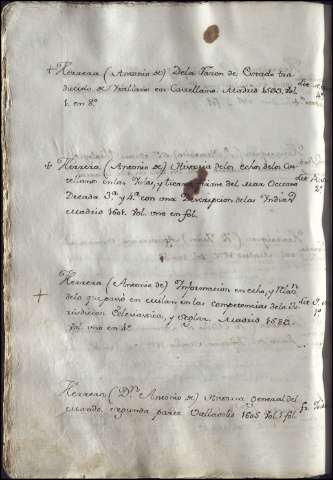 + Herrera (Antonio de) Dela Razon de Estado tra
ducido de Italiano en Castellano. Madrid 1593. Vol.
1. en 8º
+ Herrera (Antonio de) Historia delos echos delos Cas
tellanos en las Islas, y tierra firme del Mar Occeano
Decada 3ª y 4ª con una Descripcion de las Indias
Madrid 1601. Vol. uno en fol.
+ Herrera (Antonio de) Informacion en echo, y
delo que pasó en Milan en las competencias de la Ju
risdicion Eclesiastica, y Seglar. Madrid
Vol. uno en 4º
Herrera (Dn Antonio de) Historia general del
Mundo, segunda parte Valladolid 1606 Vol. 1 fol.